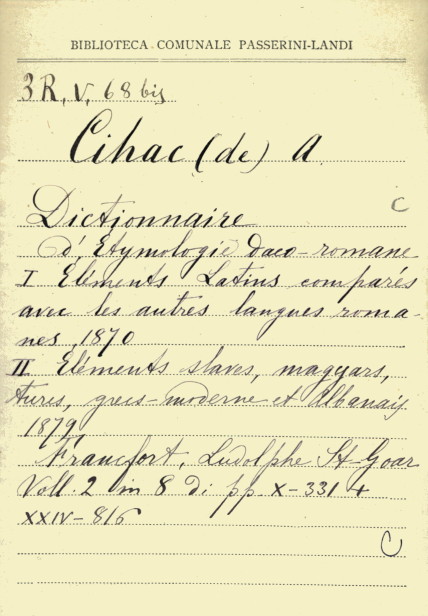 BIBLIOTECA COMUNALE PASSERINI-LANDI
3R. V. 68 bis
Cihac (de) A
C
Dictionnaire
d'Etymologie daco-romane
I Eléments Latins comparés
avec les autres langues roma-
nes, 1870
II Eléments slaves, magyars,
Turcs, grecs-moderne et Albanais
1879,
Francfort, Ludolphe St-Goar
Voll. 2 in 8 di pp. X-331 +
XXIV-816
C